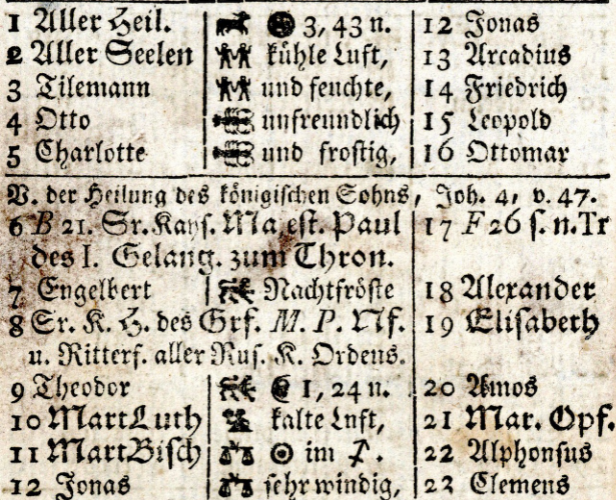 1 Aller Heil. 3, 43 n. 12 Jonas
2 Aller Seelen kühle Luft, 13 Arcadius
3 Tilemann und feuchte, 14 Friedrich
4 Otto unfreundlich 15 Leopold
5 Charlotte und frostig, 16 Ottomar
V. der Heilung des königischen Sohns, Joh. 4, v. 47.
6 B 21. Sr. Kays. Majest. Paul 17 F 26 s. n. Tr
des I. Gelang. zum Thron.
7 Engelbert Nachtfröste 18 Alexander
8 Sr. K. H. des Grf. M. P. Nf. 19 Elisabeth
u. Ritterf. aller Rus. K. Ordens.
9 Theodor ☾ 1, 24 n. 20 Amos
10 MartLuth kalte Luft, 21 Mar. Opf.
11 MartBisch ☉ im ♐. 22 Alphonsus
12 Jonas sehr windig, 23 Clemens